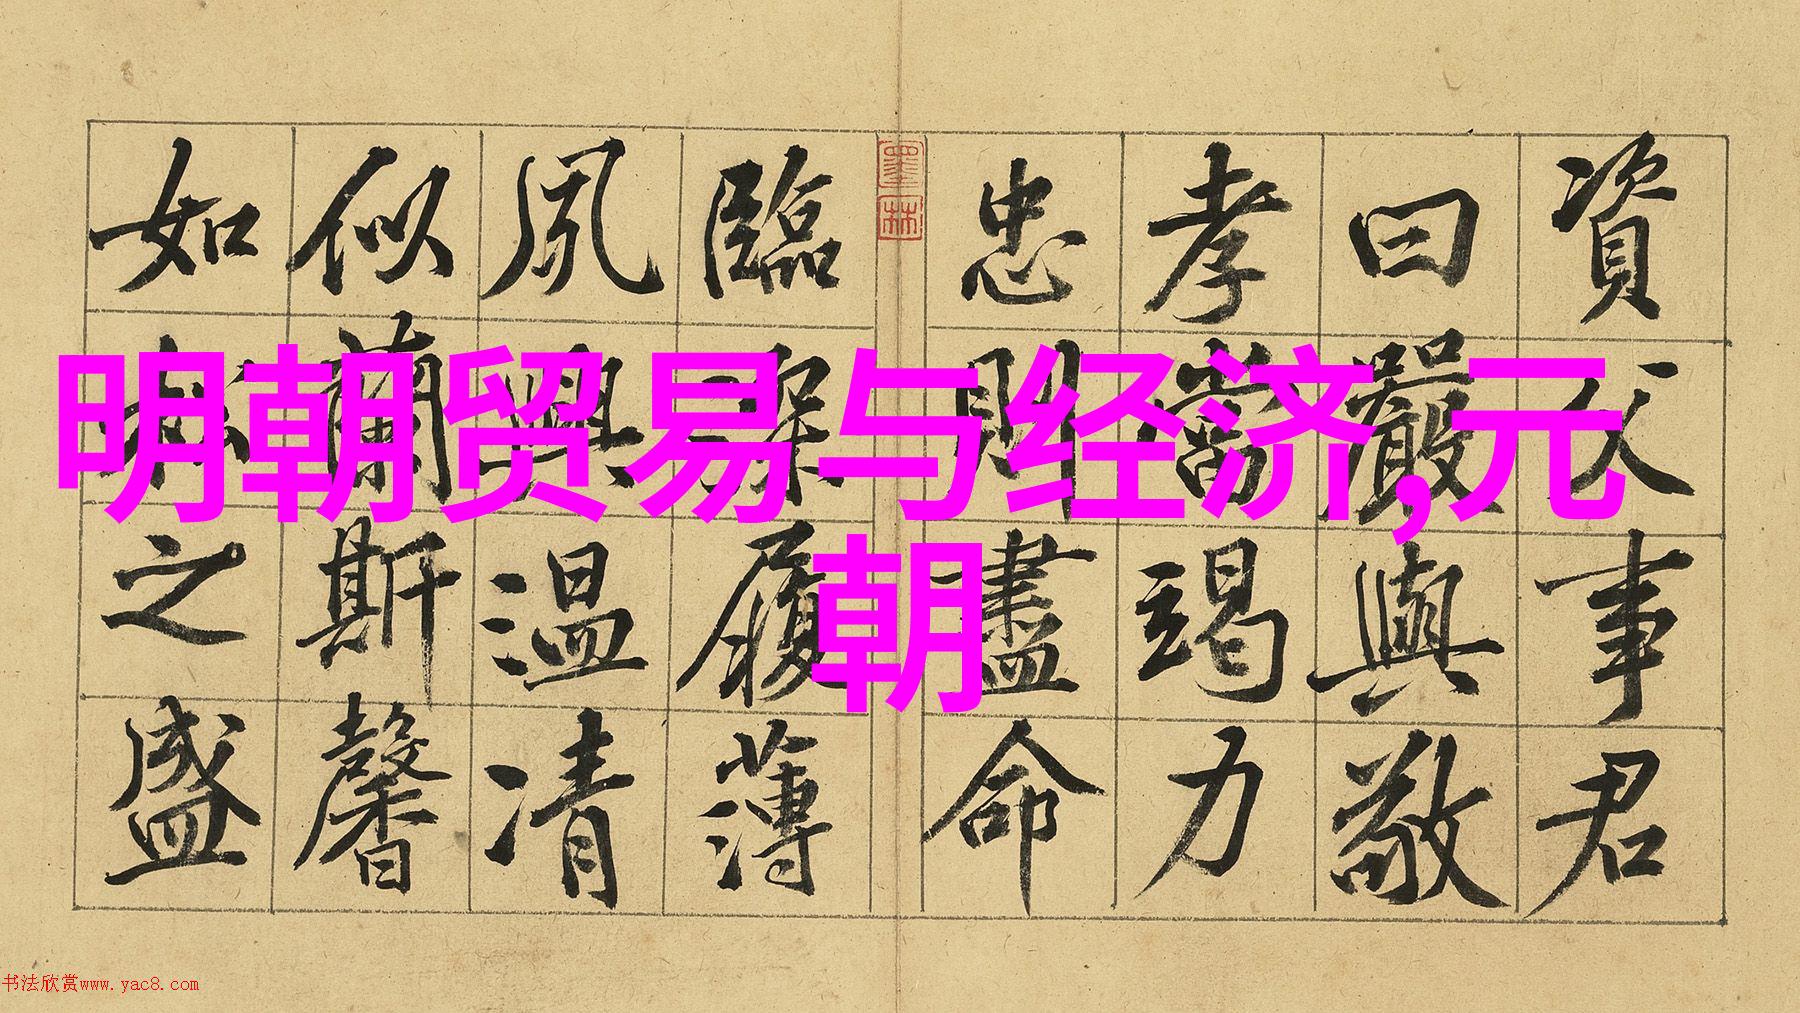 明朝贸易与经济,元
朝
資父事君
曰嚴與敬
孝當竭力
忠則盡命
墨林
臨深履薄
夙興温凊
似蘭斯馨
如松之盛
书法欣赏www.yac8.com